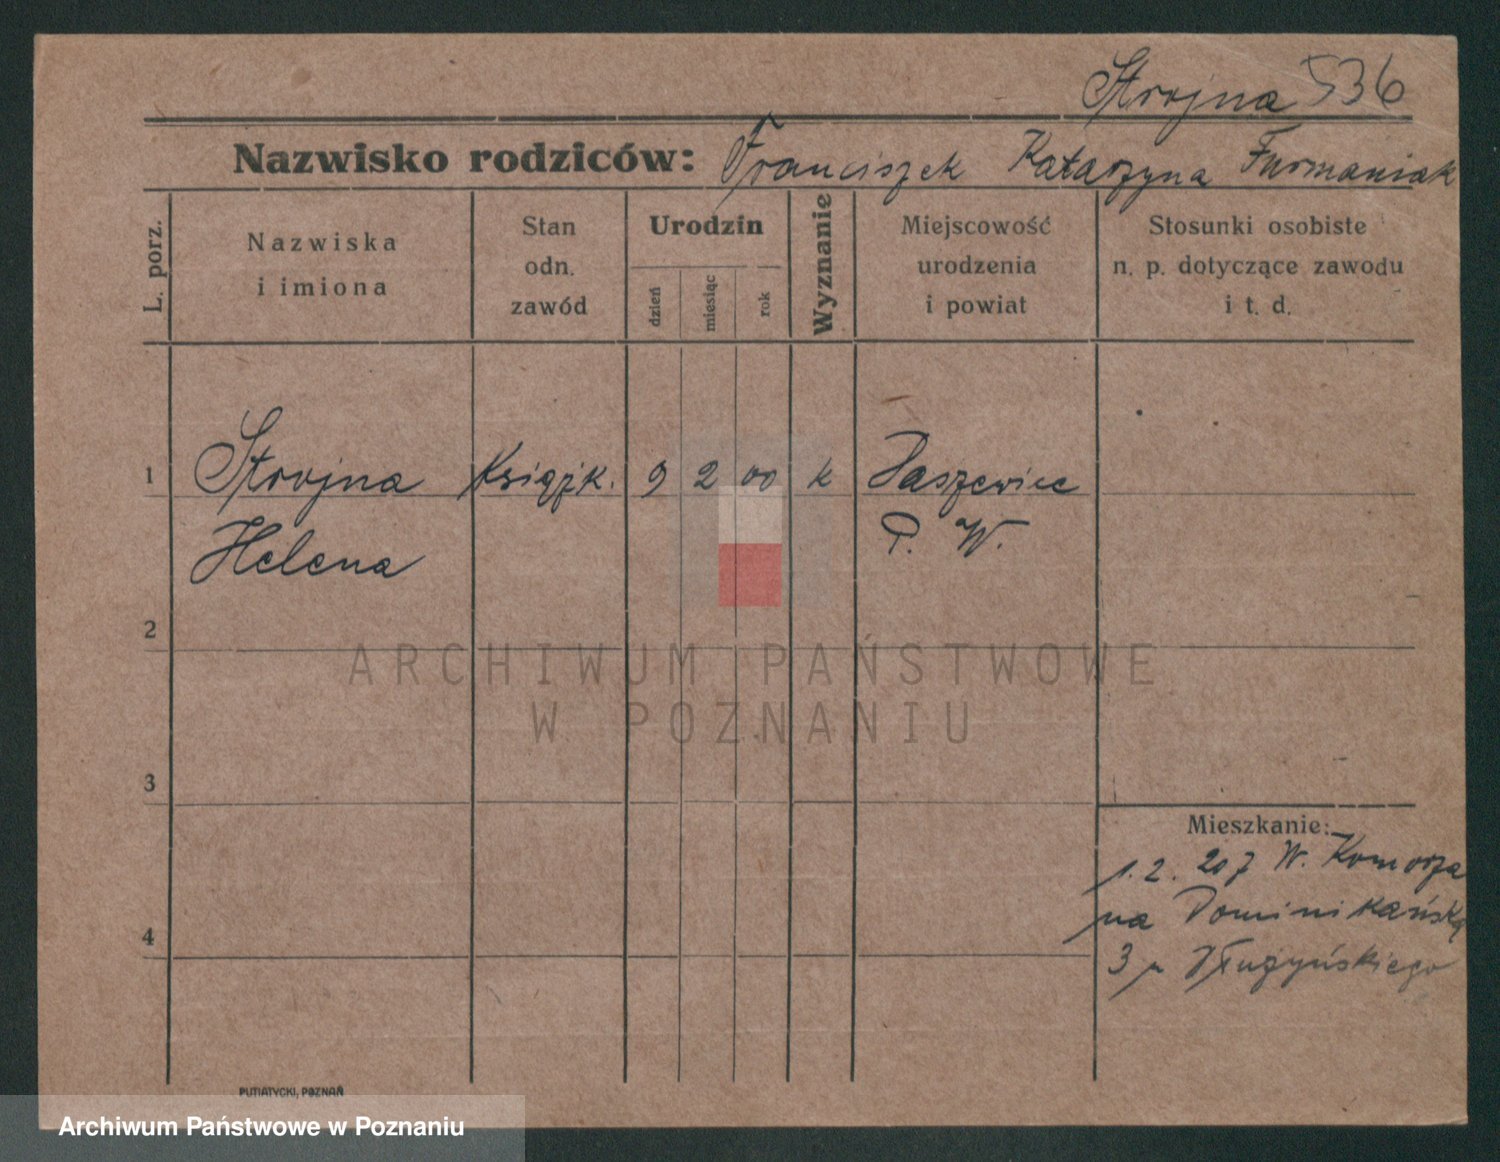 Strojna 536
Nazwisko rodziców: Franciszek Katarzyna Furmaniak
L. porz.
Nazwiska
i imiona
Stan
odn.
zawód
Urodzin
dzień
miesiąc
rok
Wyznanie
Miejscowość
urodzenia
i powiat
Stosunki osobiste
n. p. dotyczące zawodu
i t. d.
1 Strojna Książk. 9 2 00 k Daszewice
Helena P. W.
2
ARCHIWUM PAŃSTWOWE
W POZNANIU
3
Mieszkanie:
1.2. 207 W. Komorza
na Dominikańską
4
3 u Dłużyńskiego
PUTIATYCKI, POZNAŃ
Archiwum Państwowe w Poznaniu